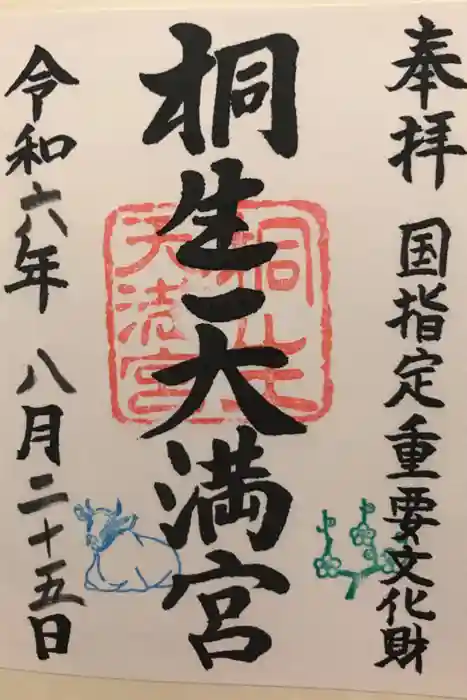 奉拝 国指定重要文化財
桐生天満宮
桐生
天満宮
令和六年 八月二十五日